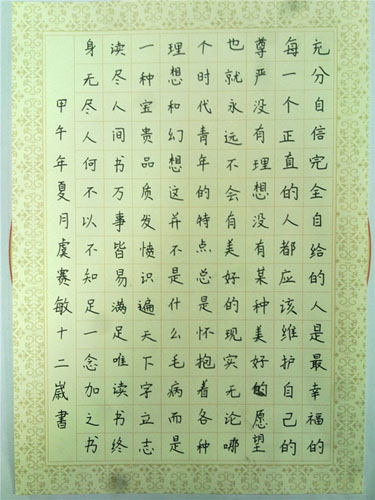 充分自信完全自给的人是最幸福的
每一个正直的人都应该维护自己的
尊严没有理想没有某种美好的愿望
也就永远不会有美好的现实无论哪
个时代青年的特点总是怀抱着各种
理想和幻想这并不是什么毛病而是
一种宝贵品质发愤识遍天下字立志
读尽人间书万事皆易满足唯读书终
身无尽人何不以不知足一念加之书
甲午年夏月虞赛敏十二歲書